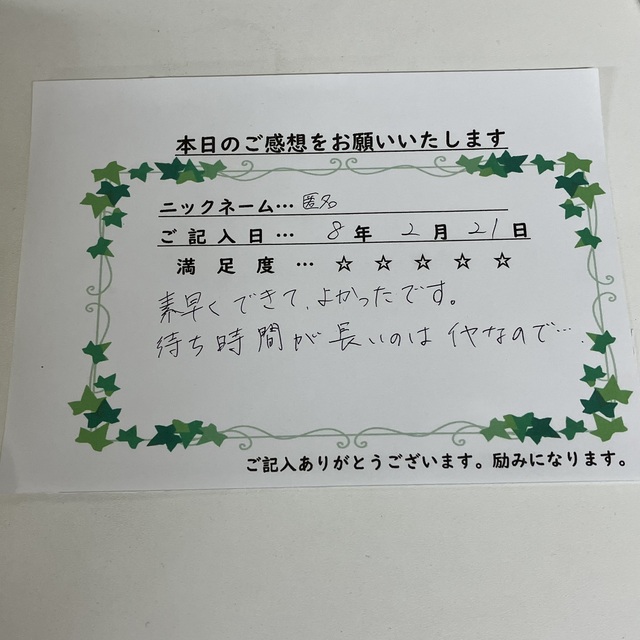 本日のご感想をお願いいたします
ニックネーム…匿名
ご記入日… 8年 2月 21日
満足度…☆☆☆☆☆
素早くできて、よかったです。
待ち時間が長いのはイヤなので….
ご記入ありがとうございます。励みになります。